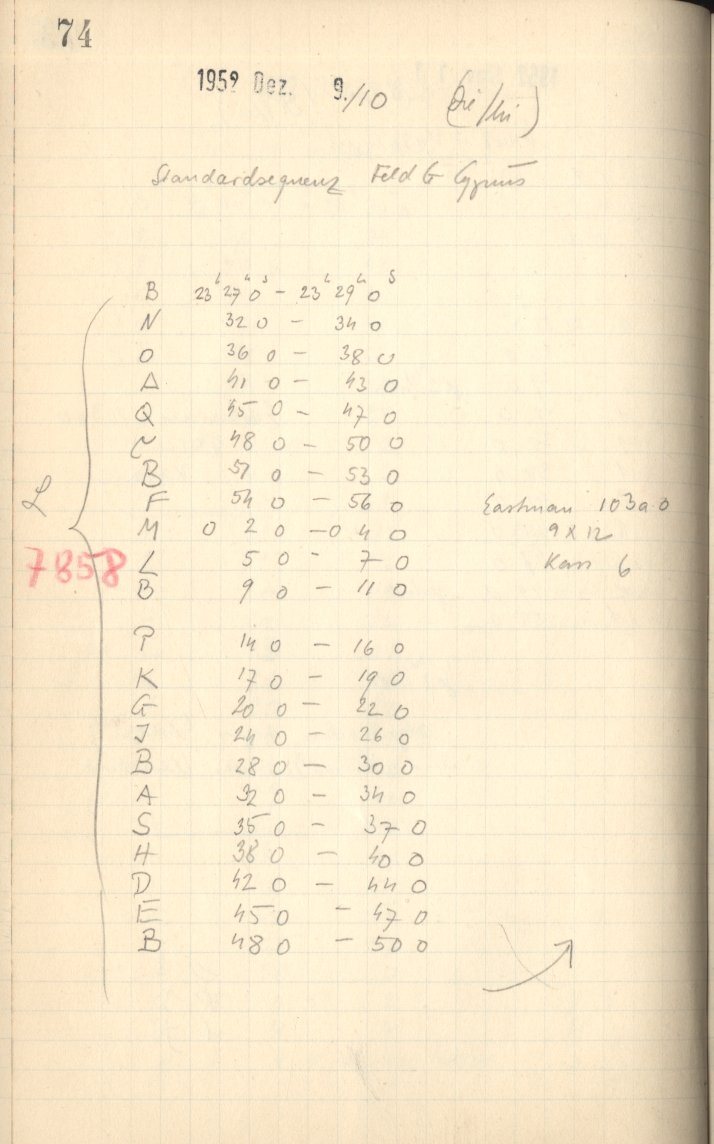 74
1952 Dez. 9./10
Standardsequenz Feld G Cygnus
B 23h 27m 0s - 23h 29m 0s
N 32 0 - 34 0
O 36 0 - 38 0
A 41 0 - 43 0
Q 45 0 - 47 0
C 48 0 - 50 0
B 51 0 - 53 0
F 54 0 - 56 0
Eastman 103a O
M 0 2 0 - 0 4 0
9 X 12
L
7858
L 5 0 - 7 0
Kass 6
B 9 0 - 11 0
P 14 0 - 16 0
K 17 0 - 19 0
G 20 0 - 22 0
J 24 0 - 26 0
B 28 0 - 30 0
A 32 0 - 34 0
S 35 0 - 37 0
H 38 0 - 40 0
D 42 0 - 44 0
E 45 0 - 47 0
B 48 0 - 50 0